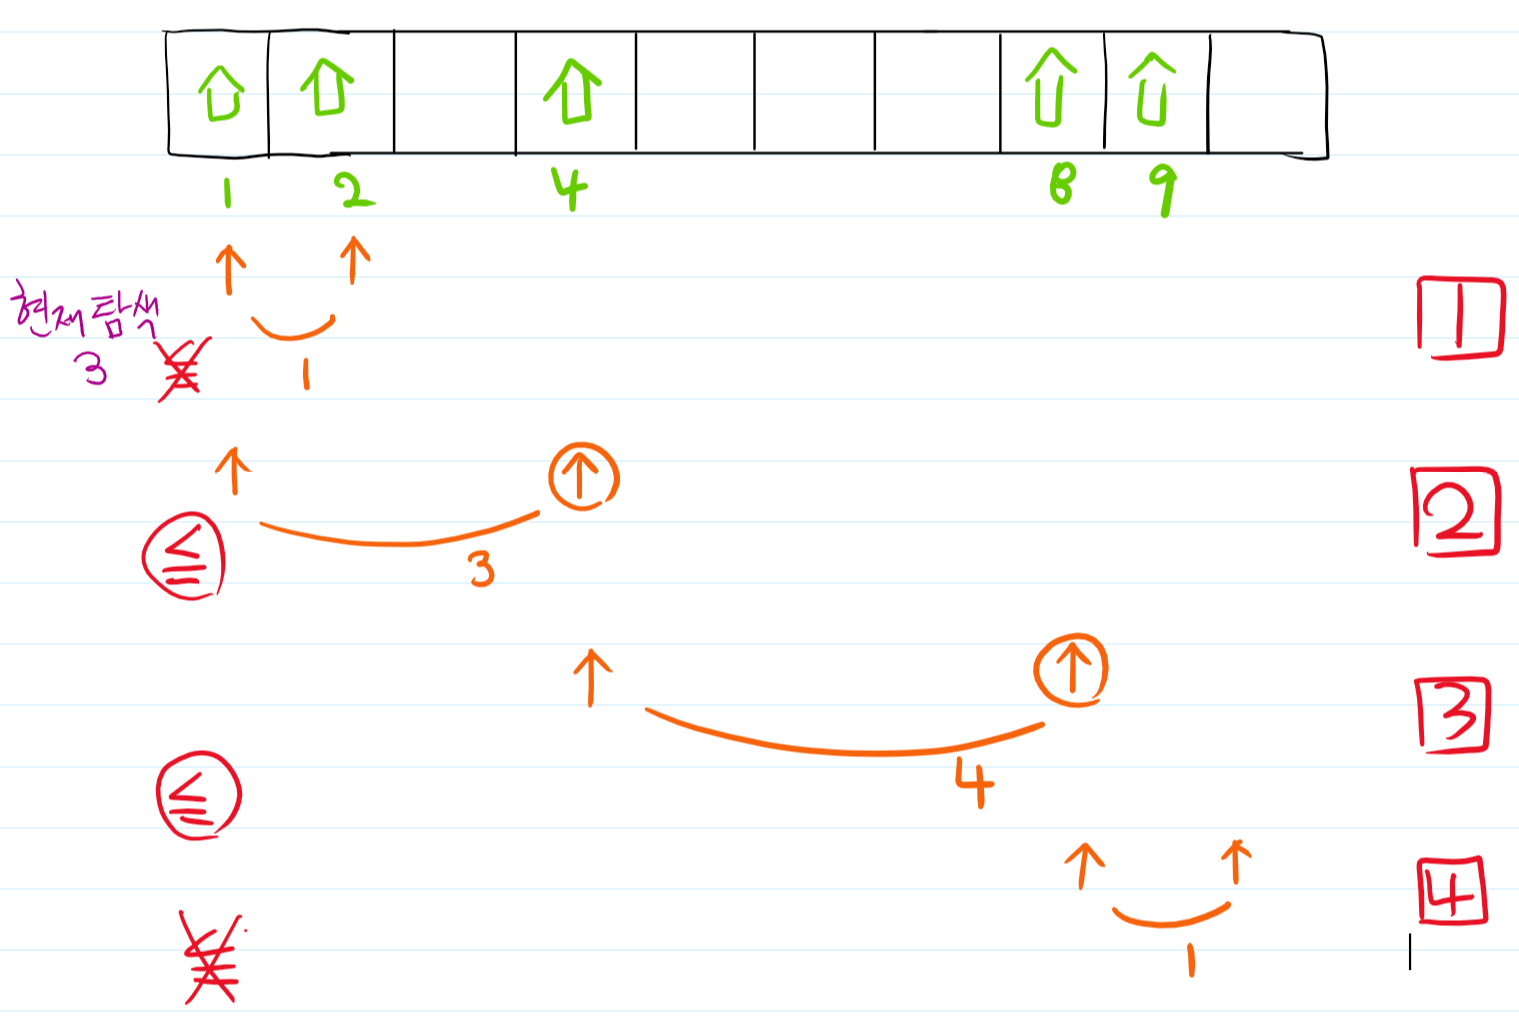 1 2 4 8 9
현재 탐색
3
1
1
≦
3
2
≦
4
3
1
4